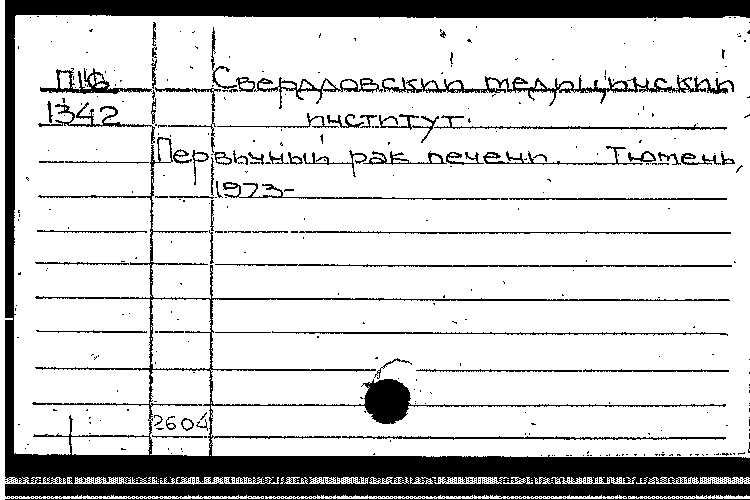 П16 Свердловский медицинский
1342 институт.
Первичный рак печени. Тюмень,
1973-
2604